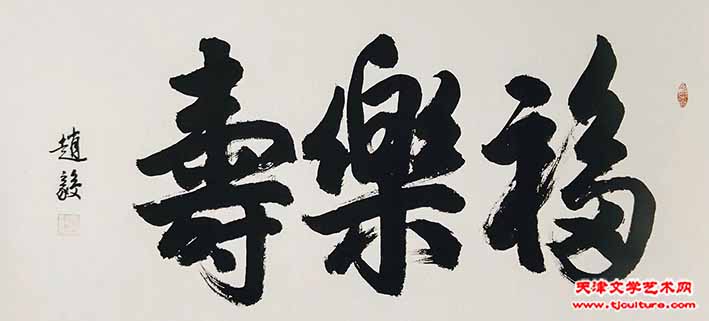 福樂壽
趙毅
天津文学艺术网
www.tjculture.com